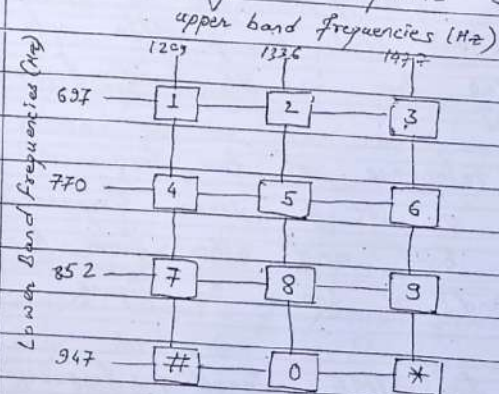 upper band frequencies (Hz)
1209 1336 1477
Lower Band frequencies (Hz)
697 1 2 3
770 4 5 6
852 7 8 9
947 # 0 *